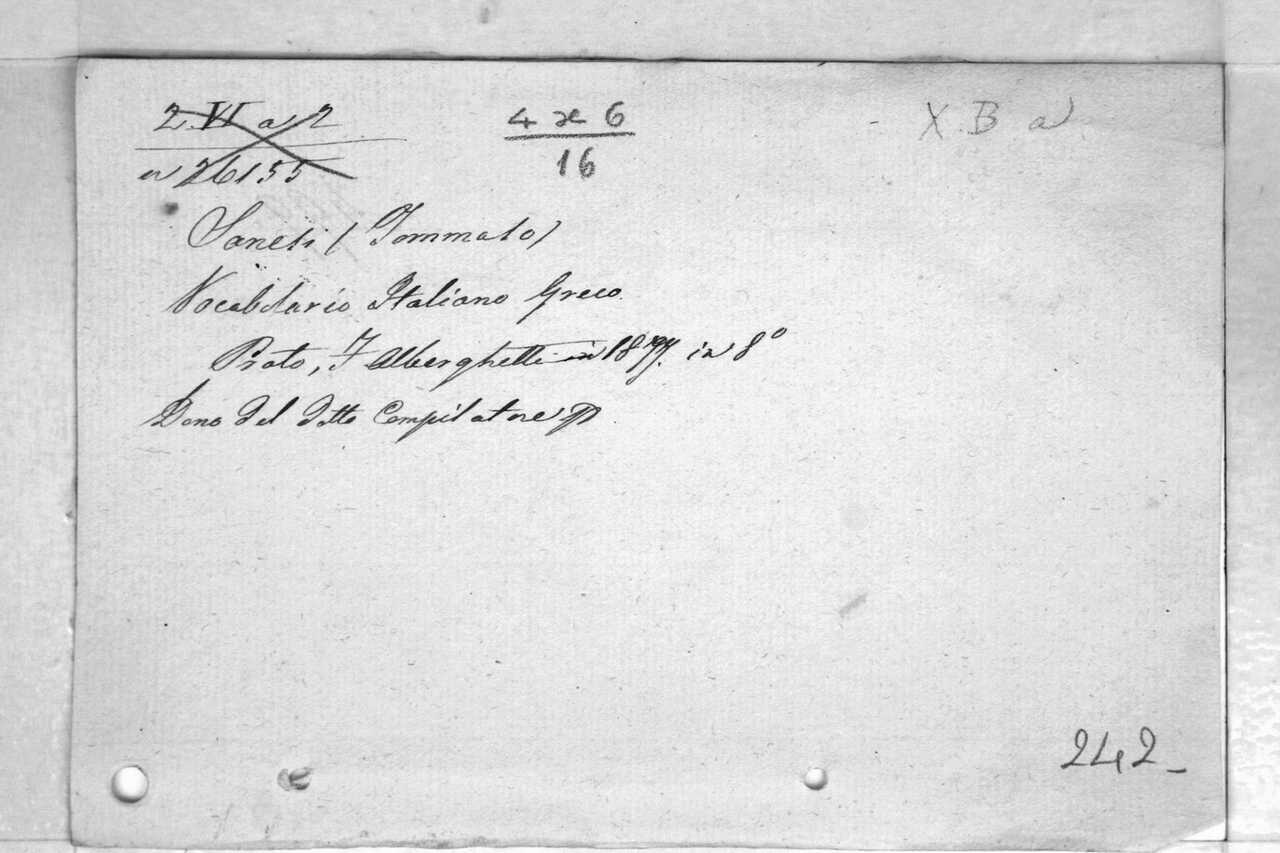 2. VI a 2
n 26155
4 x 6
16
X B a
Saneti (Tommaso)
Vocabolario Italiano Greco.
Prato, F Alberghetti in 1877. in 8°
Dono del ditto Compilatore
242_